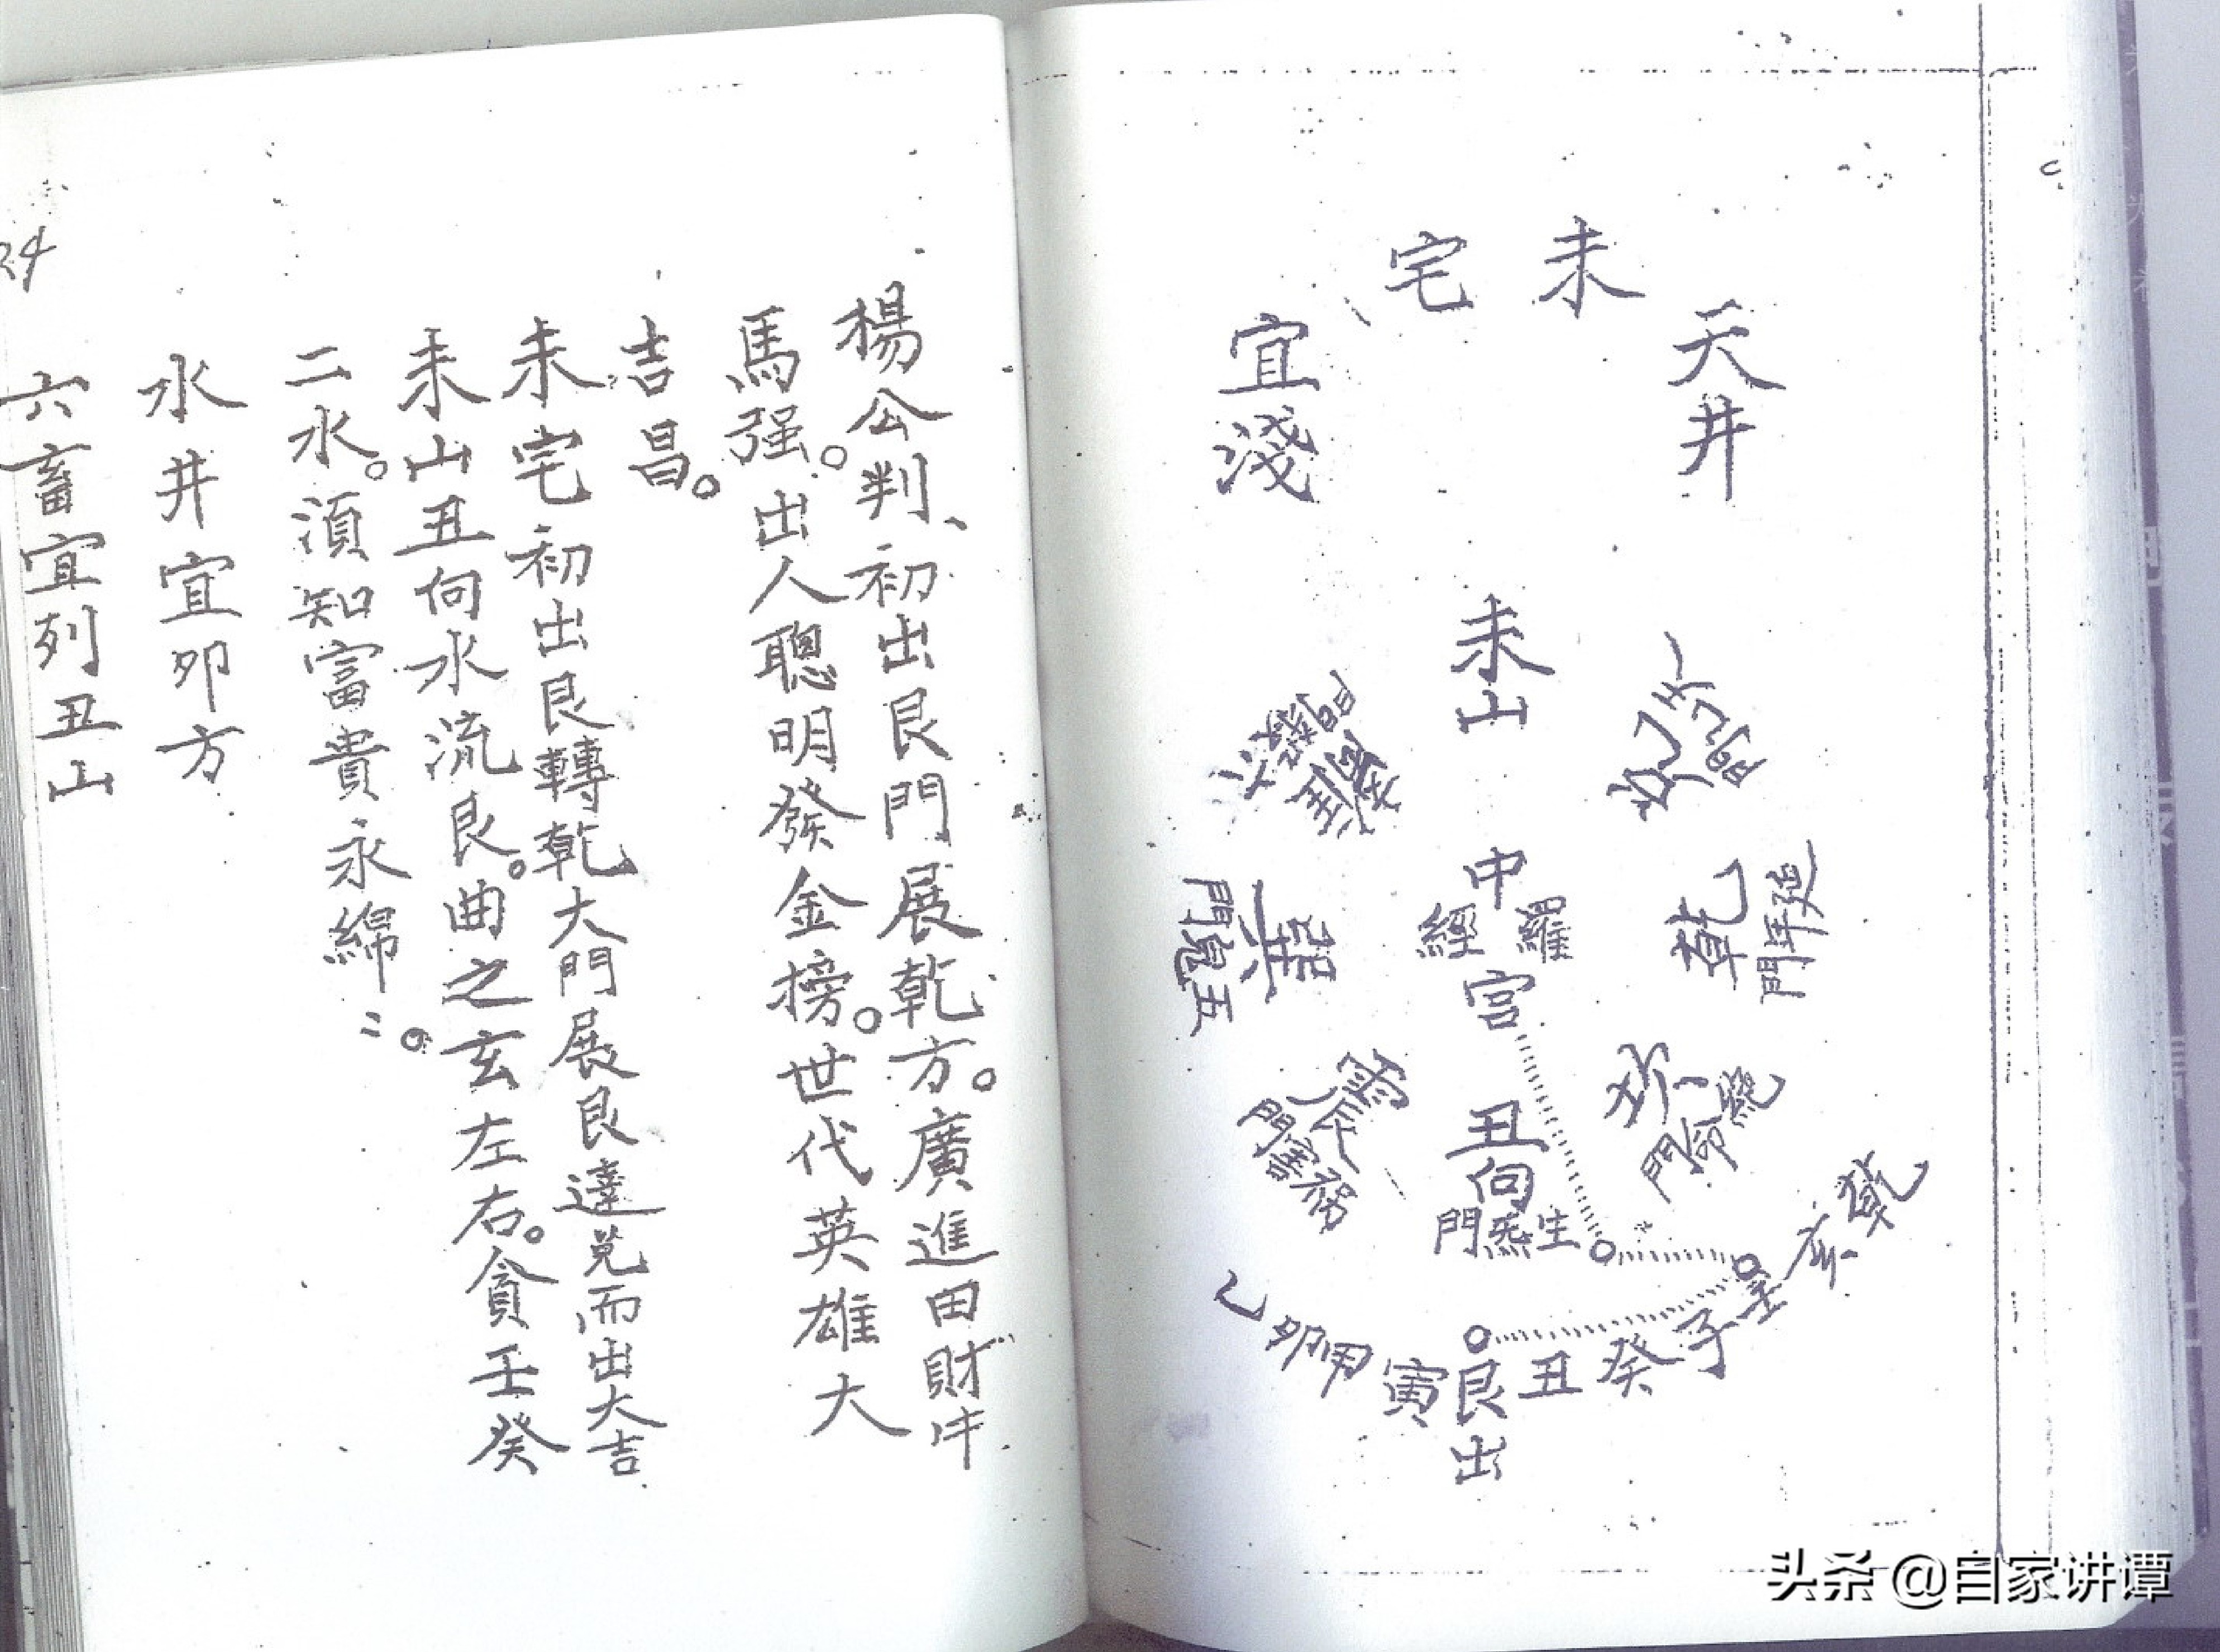 未宅
天井
宜淺
未山
中宮
羅經
乾
延年門
絕命門
丑向
生炁門
五鬼門
禍害門
六殺門
乾亥壬子癸丑艮寅甲卯乙
出
楊公判、初出艮門展乾方。廣進田財牛
馬强。出人聰明發金榜。世代英雄大
吉昌。
未宅初出艮轉乾大門展艮達兌而出大吉
未山丑向水流艮。曲之玄左右。貪壬癸
二水。須知富貴永綿〻。
水井宜卯方
六畜宜列丑山
24
头杀 @自家讲谭